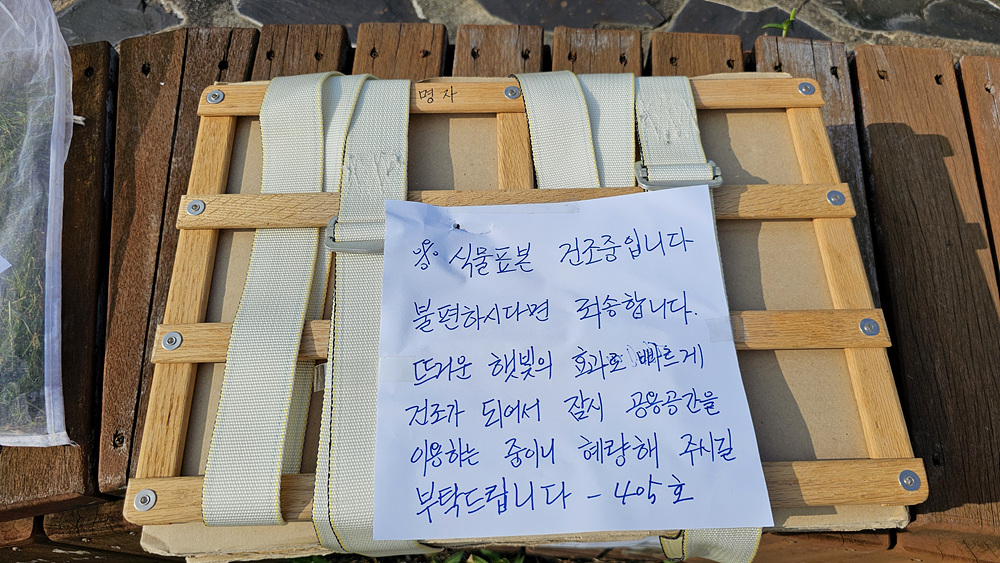 명자
식물표본 건조중입니다
불편하시다면 죄송합니다.
뜨거운 햇빛의 효과로 빠르게
건조가 되어서 잠시 공용공간을
이용하는 중이니 혜량해 주시길
부탁드립니다 - 405호